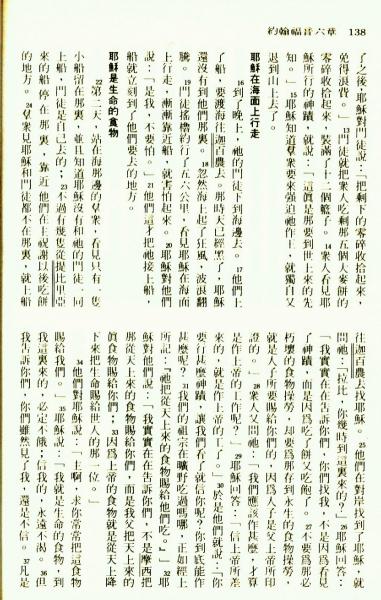 約翰福音六章 138
了之後，耶穌對門徒說：「把剩下的零碎收拾起來，
免得浪費。」13門徒就把眾人吃剩那五個大麥餅的
零碎收拾起來，裝滿了十二個籃子。14眾人看見耶
穌所行的神蹟，就說：「這真是那要到世上來的先
知。」15耶穌知道羣眾要來強迫祂作王，就獨自又
退到山上去了。
耶穌在海面上行走
16到了晚上，祂的門徒下到海邊去。17他們上
了船，要渡海往迦百農去。那時天已經黑了，耶穌
還沒有到他們那裏。18忽然海上起了狂風，波浪翻
騰。19門徒搖櫓約行了五六公里，看見耶穌在海面
上行走，漸漸靠近船，就害怕起來。20耶穌對他們
說：「是我，不要怕。」21他們這才把祂接上船，
船就立刻到了他們要去的地方。
耶穌是生命的食物
22第二天，站在海那邊的羣眾，看見只有一隻
小船留在那裏，並且知道耶穌沒有和祂的門徒一同
上船，門徒是自己去的；23不過有幾隻從提比里亞
來的船停在那裏，靠近他們在主祝謝以後吃餅
的地方。24羣眾見耶穌和門徒都不在那裏，就上船
往迦百農去找耶穌。25他們在對岸找到了耶穌，就
問祂：「拉比，你幾時到這裏來的？」26耶穌回答：
「我實實在在告訴你們，你們找我，不是因為看見
了神蹟，而是因為吃了餅又吃飽了。27不要為那必
朽壞的食物操勞，卻要為那存到永生的食物操勞，
就是人子所要賜給你們的，因為人子是父上帝所印
證的。」28眾人又問祂：「我們應該作甚麼，才算
是作上帝的工作呢？」29耶穌回答：「信上帝所差
來的，就是作上帝的工了。」30於是他們就說：「你
要行甚麼神蹟，讓我們看了就信你呢？你到底能作
甚麼呢？31我們的祖宗在曠野吃過嗎哪，正如經上
所記：『祂把從天上來的食物賜給他們吃。』」32耶
穌對他們說：「我實實在在告訴你們，不是摩西把
那從天上來的食物賜給你們，而是我父把天上來的
真食物賜給你們；33因為上帝的食物就是從天上降
下來把生命賜給世人的那一位。」
34他們對耶穌說：「主啊，求你常常把這食物
賜給我們。」35耶穌說：「我就是生命的食物，到
我這裏來的，必定不餓；信我的，永遠不渴。36但
我告訴你們，你們雖然見了我，還是不信。37凡是